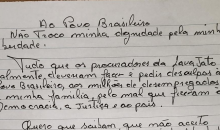 Ao Povo Brasileiro
Não Troco minha dignidade pela minha
berdade.
Tudo que os procuradores da Lava Jato
almente, deveriam fazer é pedir desculpas ao
Povo Brasileiro, aos milhões de desempregados
minha família, pelo mal que fizeram à
Democracia, à Justiça e ao país.
Quero que saibam, que não aceito